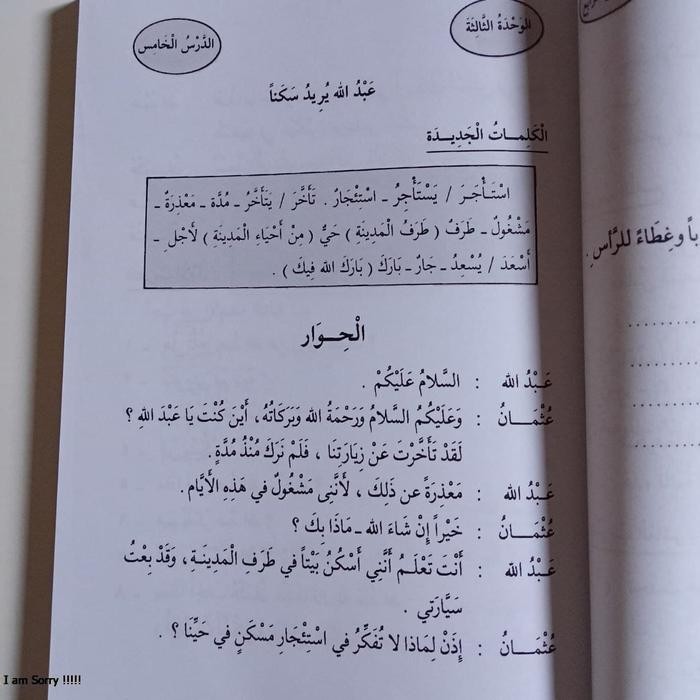 الْوَحْدَةُ الثَّالِثَةُ
الدَّرْسُ الْخَامِسُ
عَبْدُ الله يُرِيدُ سَكَناً
الْكَلِمَاتُ الْجَدِيدَة
اسْتَأْجَرَ / يَسْتَأْجِرُ - اسْتِئْجَارٌ . تَأَخَّرَ / يَتَأَخَّرُ - مُدَّة - مَعْذِرَةٌ -
مَشْغُولٌ - طَرَفُ ( طَرَفُ الْمَدِينَةِ ) حَيُّ ( مِنْ أَحْيَاءِ الْمَدِينَةِ ) لَأَجْلِ -
أَسْعَدَ / يُسْعِدُ - جَارٌ - بَارَكَ ( بَارَكَ الله فِيكَ ) .
الْحِوَار
عَبْدُ الله : السَّلَامُ عَلَيْكُمْ .
عُثْمَانُ : وَعَلَيْكُمُ السَّلَامُ وَرَحْمَةُ الله وَبَرَكَاتُهُ، أَيْنَ كُنْتَ يَا عَبْدَ اللهِ ؟
لَقَدْ تَأَخَّرْتَ عَنْ زِيَارَتِنَا ، فَلَمْ نَرَكَ مُنْذُ مُدَّةٍ.
عَبْدُ الله : مَعْذِرَةً عن ذَلِكَ ، لَأَنَّنِى مَشْغُولٌ في هَذِهِ الْأَيَّام.
عُثْمَانُ : خَيْراً إِنْ شَاءَ الله - مَاذَا بِكَ ؟
عَبْدُ الله : أَنْتَ تَعْلَمُ أَنَّنِي أَسْكُنُ بَيْتاً في طَرَفِ الْمَدِينَةِ، وَقَدْ بِعْتُ
سَيَّارَتي .
عُثْمَانُ : إِذَنْ لِمَاذا لَا تُفَكِّرُ في اسْتِئْجَارِ مَسْكَنٍ في حَيِّنَا ؟ .
بأ وغِطَاءً للرَّأسِ .
I am Sorry !!!!!